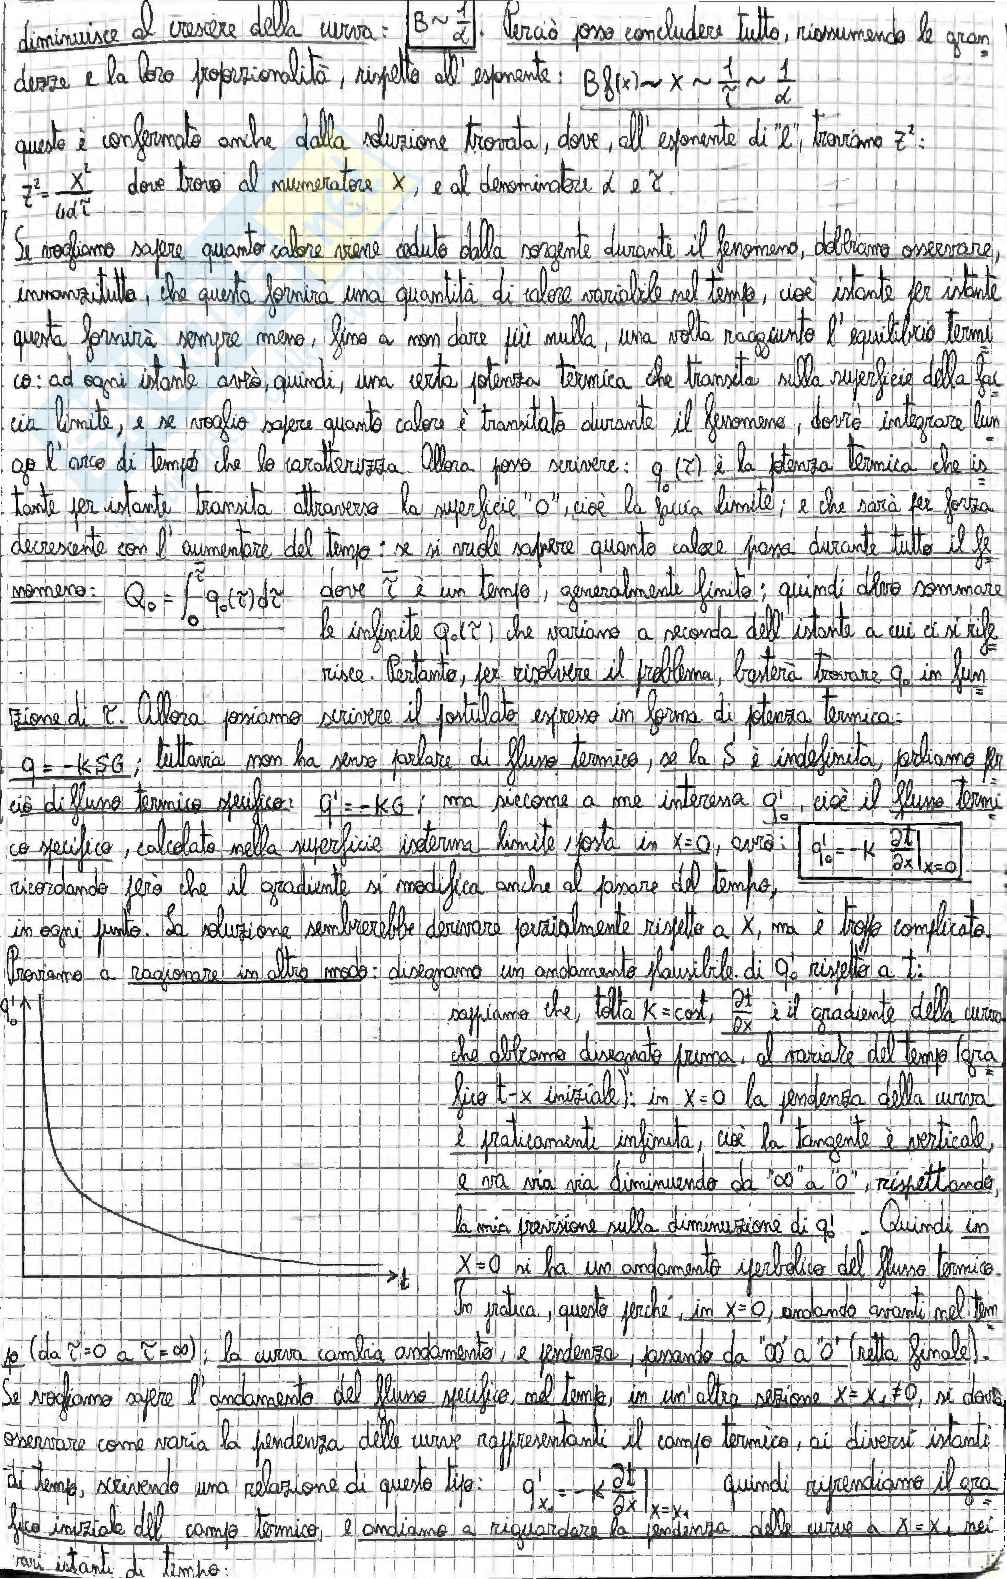 diminuisce al crescere della curva: B ~ 1/α. Perciò posso concludere tutto, riassumendo le gran
dezze e la loro proporzionalità, rispetto all'esponente: Bf(x) ~ x ~ 1/τ ~ 1/α
questo è confermato anche dalla soluzione trovata, dove, all'esponente di "e", troviamo z²:
z² = x²/4ατ dove trovo al numeratore x, e al denominatore α e τ.
Se vogliamo sapere quanto calore viene ceduto dalla sorgente durante il fenomeno, dobbiamo osservare,
innanzitutto, che questa fornirà una quantità di calore variabile nel tempo, cioè istante per istante
questa fornirà sempre meno, fino a non dare più nulla, una volta raggiunto l'equilibrio termi
co: ad ogni istante avrò, quindi, una certa potenza termica che transita sulla superficie della fac
cia limite, e se voglio sapere quanto calore è transitato durante il fenomeno, dovrò integrare lun
go l'arco di tempo che lo caratterizza. Allora posso scrivere: q₀(τ) è la potenza termica che is
tante per istante transita attraverso la superficie "0", cioè la faccia limite, e che sarà per forza
decrescente con l'aumentare del tempo: se si vuole sapere quanto calore passa durante tutto il fe
nomeno: Q₀ = ∫₀^τ̄ q₀(τ)dτ dove τ̄ è un tempo, generalmente finito; quindi devo sommare
le infinite q₀(τ) che variano a seconda dell'istante a cui ci si rife
risce. Pertanto, per risolvere il problema, basterà trovare q₀ in fun
zione di τ. Allora possiamo scrivere il postulato espresso in forma di potenza termica:
q = -KSG; tuttavia non ha senso parlare di flusso termico, se la S è indefinita, parliamo per
ciò di flusso termico specifico: q' = -KG; ma siccome a me interessa q'₀, cioè il flusso termi
co specifico, calcolato nella superficie interna limite, posta in x=0, avrò: q'₀ = -K ∂t/∂x|x=0
ricordando però che il gradiente si modifica anche al passare del tempo,
in ogni punto. La soluzione sembrerebbe derivare parzialmente rispetto a x, ma è troppo complicato.
Proviamo a ragionare in altro modo: disegnamo un andamento plausibile di q'₀ rispetto a t:
q'₀
t
sappiamo che, tolta K = cost, ∂t/∂x è il gradiente della curva
che abbiamo disegnato prima, al variare del tempo (gra
fico t-x iniziale): in x=0 la pendenza della curva
è praticamente infinita, cioè la tangente è verticale,
e va via via diminuendo da "∞" a "0", rispettando,
la mia previsione sulla diminuzione di q'₀. Quindi in
x=0 si ha un andamento iperbolico del flusso termico.
In pratica, questo perché, in x=0, andando avanti nel tem
po (da τ=0 a τ=∞), la curva cambia andamento, e pendenza, passando da "∞" a "0" (retta finale).
Se vogliamo sapere l'andamento del flusso specifico, nel tempo, in un'altra sezione x=x₁≠0, si dovrà
osservare come varia la pendenza delle curve rappresentanti il campo termico, ai diversi istanti
di tempo, scrivendo una relazione di questo tipo: q'x₁ = -K ∂t/∂x|x=x₁ quindi riprendiamo il gra
fico iniziale del campo termico, e andiamo a riguardare la pendenza delle curve a x=x₁ nei
vari istanti di tempo: